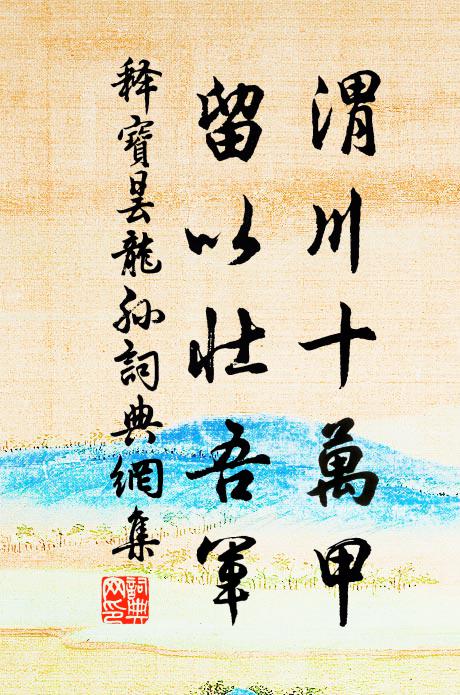 渭川十萬甲
留以壯吾軍
释寶昙龍孙詞典網集
詞典
网印